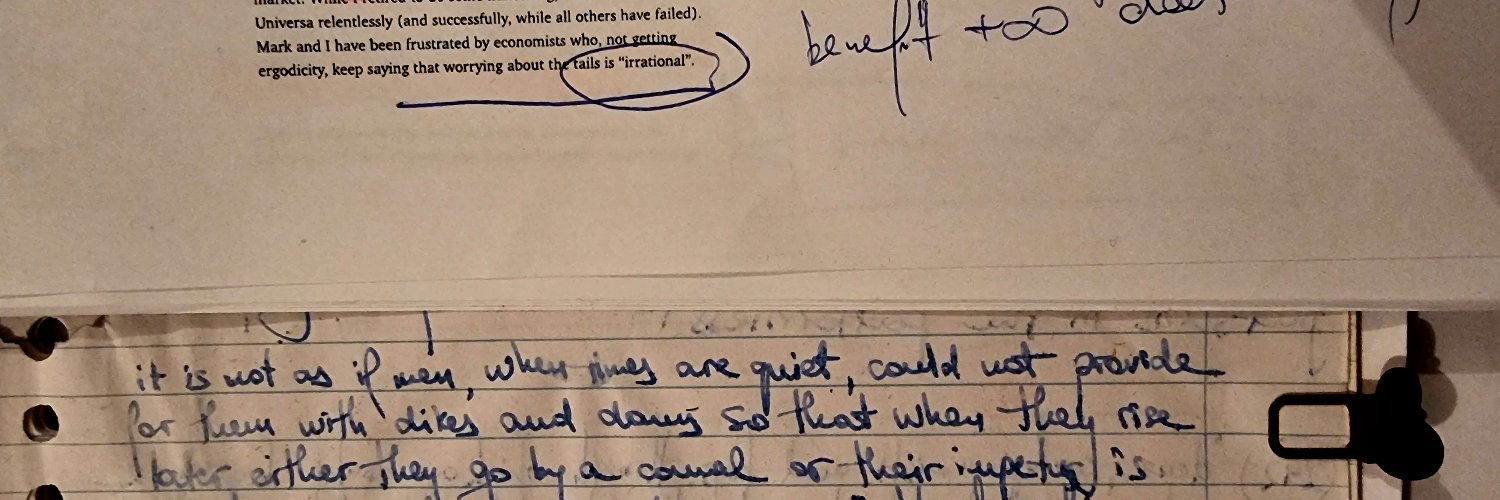 Universa relentlessly (and successfully, while all others have failed).
Mark and I have been frustrated by economists who, not getting
ergodicity, keep saying that worrying about the tails is “irrational”.
benefit +∞
it is not as if men, when times are quiet, could not provide
for them with dikes and dams so that when they rise
later either they go by a canal or their impetus is